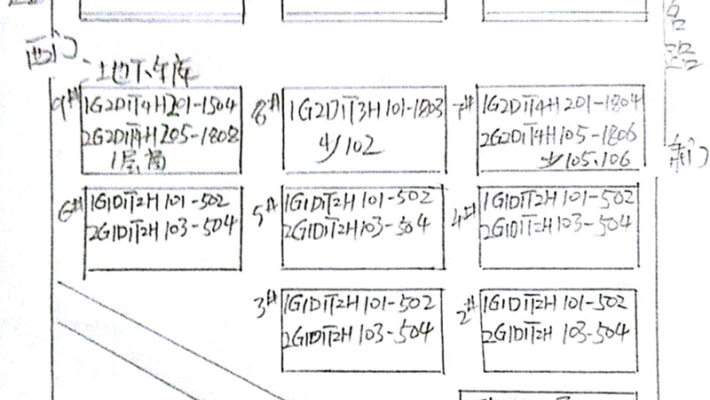 西门
地下车库
9#
1G2DT4H201-1504
2G2DT4H205-1808
1层商
8#
1G2DT3H101-1803
少102
7#
1G2DT4H201-1804
2G2DT4H105-1806
少105.106
东门
6#
1G1DT2H101-502
2G1DT2H103-504
5#
1G1DT2H101-502
2G1DT2H103-504
4#
1G1DT2H101-502
2G1DT2H103-504
3#
1G1DT2H101-502
2G1DT2H103-504
2#
1G1DT2H101-502
2G1DT2H103-504